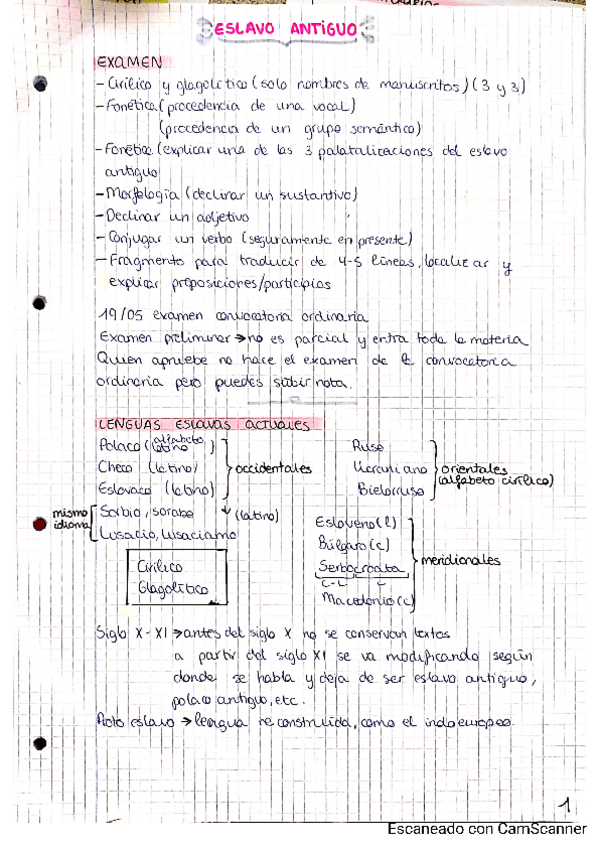 ESLAVO ANTIGUO
EXAMEN
- Cirílico y glagolítico (solo nombres de manuscritos) (3 y 3)
- Fonética (procedencia de una vocal)
(procedencia de un grupo semántico)
- Fonética (explicar una de las 3 palatalizaciones del eslavo
antiguo
- Morfología (declinar un sustantivo)
- Declinar un adjetivo
- Conjugar un verbo (seguramente en presente)
- Fragmento para traducir de 4-5 líneas, localizar y
explicar proposiciones/participios
19/05 examen convocatoria ordinaria
Examen preliminar → no es parcial y entra toda la materia
Quien apruebe no hace el examen de la convocatoria
ordinaria pero puedes subir nota.
LENGUAS ESLAVAS ACTUALES
Polaco (alfabeto latino)
Checo (latino)
Eslovaco (latino)
occidentales
mismo idioma
Sorbio, sorabe
Lusacio, lusaciano
↓ (latino)
Ruso
Ucraniano
Bielorruso
orientales
(alfabeto cirílico)
Cirílico
Glagolítico
Esloveno (l)
Búlgaro (c)
Serbocroata
C-L L
Macedonio (c)
meridionales
Siglo X-XI → antes del siglo X no se conservan textos
a partir del siglo XI se va modificando según
donde se habla y deja de ser eslavo antiguo,
polaco antiguo, etc.
Proto eslavo → lengua reconstruida, como el indoeuropeo.
1
Escaneado con CamScanner